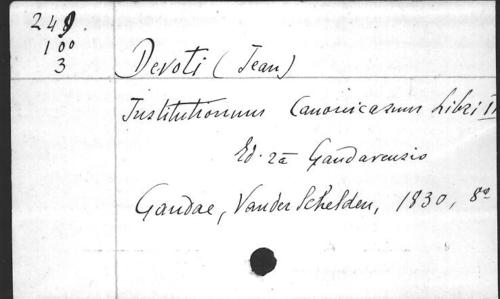 249.
100
3
Devoti (Jean)
Institutionum Canonicarum Libri
Ed. 2a Gandavensis
Gandae, Vander Schelden, 1830, 8º